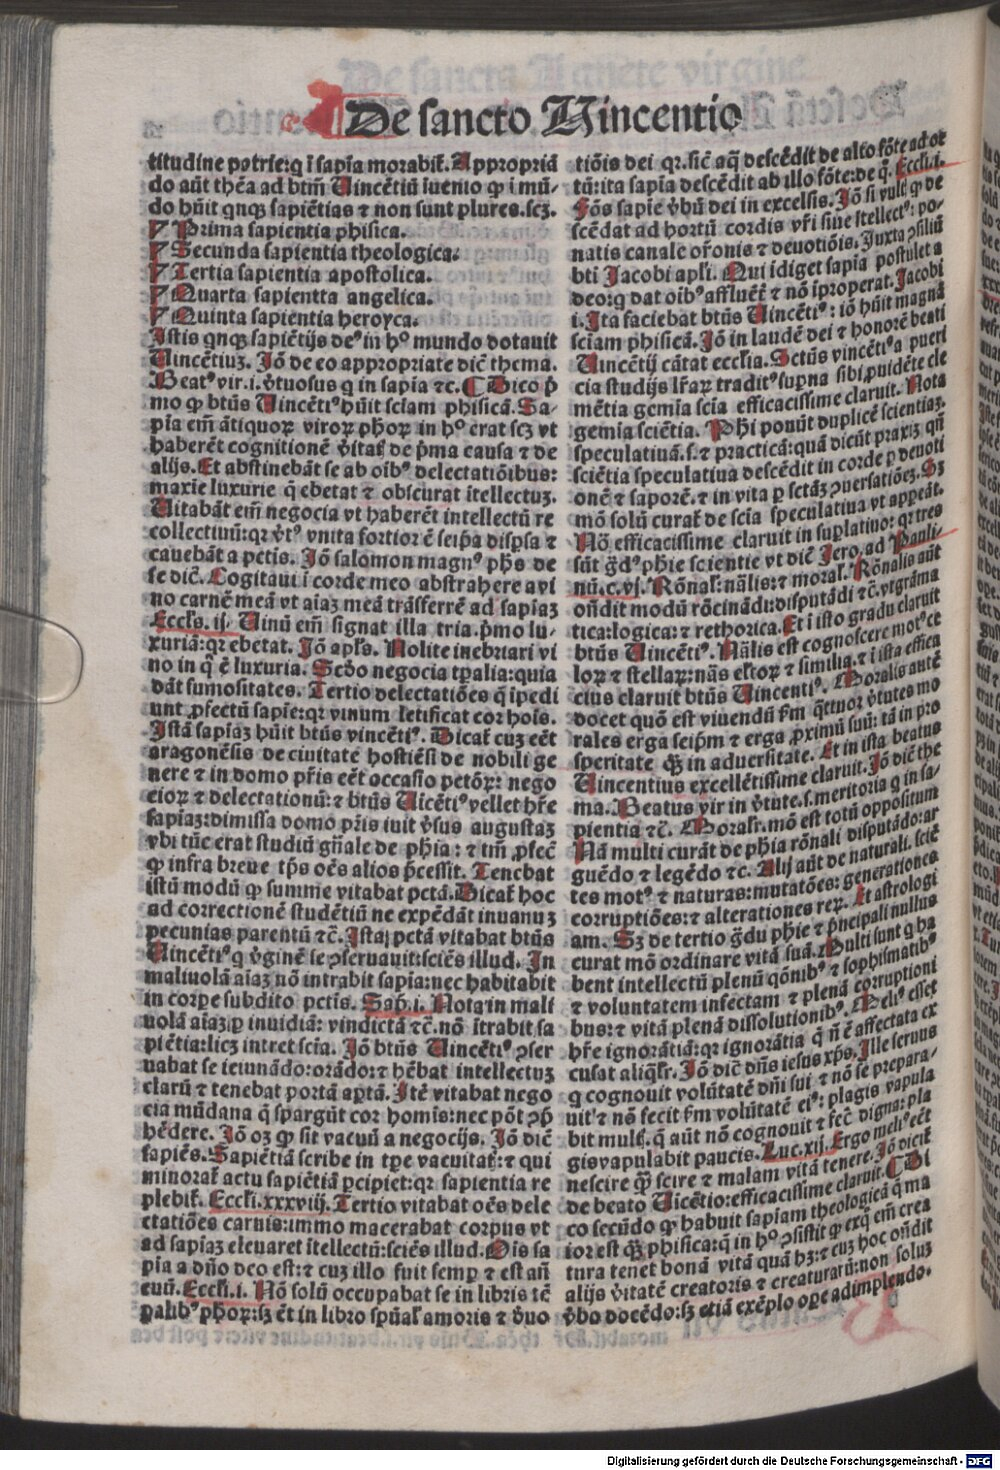 De sancto Vincentio
titudine patrie: q̄ ī sapīa morabiť. Appropriā
do aūt thēa ad btm̄ Vincētiū īuenio ꝙ ī mū-
do hūit qnqꝫ sapiētias ⁊ non sunt plures. scꝫ.
Prima sapientia phisica.
Secunda sapientia theologica.
Tertia sapientia apostolica.
Quarta sapientta angelica.
Quinta sapientia heroyca.
Istis qnqꝫ sapiētijs deꝰ in hᵒ mundo dotauit
Vincētiuꝫ. Jō de eo appropriate dic̄ thema.
Beatꝰ vir .i. v̄tuosus q in sapīa ⁊c. Dico p̄
mo ꝙ btūs Vincētiꝰ hūit sciam phisicā. Sa-
pīa em̄ ātiquoꝝ viroꝝ phōꝝ in hᵒ erat scꝫ vt
haberēt cognitionē v̄itatꝭ de p̄ma causa ⁊ de
alijs. Et abstinebāt se ab oībꝰ delectatiōibus:
maxīe luxurie q̄ ebetat ⁊ obscurat ītellectuꝫ.
Vitabāt em̄ negocia vt haberēt intellectū re
collectiuū: qꝛ v̄tꝰ vnita fortior ē seip̄a disp̄sa ⁊
cauebāt a pctis. Jō salomon magnꝰ ph̄s de
se dic̄. Cogitaui ī corde meo abstrahere a vi
no carnē meā vt aīaꝫ meā trāsferrē ad sapīaꝫ
Eccl̄s. ij. Vinū em̄ signat illa tria. p̄mo lu-
xuriā: qꝛ ebetat. Jō apl̄s. Nolite inebriari vi
no in q̄ ē luxuria. Scd̄o negocia tp̄alia: quia
dāt fumositates. Tertio delectatiōes q̄ īpedi
unt ꝓfectū sapīe: qꝛ vinum letificat cor hoīs.
Istā sapīaꝫ hūit btūs vincētiꝰ. Dicať cuꝫ eēt
aragonēsis de ciuitate hostiēsi de nobili ge
nere ⁊ in domo pr̄is eēt occasio pctōꝝ: nego
cioꝝ ⁊ delectationū: ⁊ btūs Vīcētiꝰ vellet hr̄e
sapīaꝫ: dimissa domo pr̄is iuit v̄sus augustaꝫ
vbi tūc erat studiū gn̄ale de ph̄ia: ⁊ tm̄ ꝓfec̄
ꝙ infra breue tp̄s oēs alios p̄cessit. Tenebat
istū modū ꝙ summe vitabat pctā. Dicať hoc
ad correctionē studētiū ne expēdāt inuanuꝫ
pecunias parentū ⁊c̄. Ista pctā vitabat btūs
Vincētiꝰ q v̄ginē se ꝯseruauit: sciēs illud. In
maliuolā aīaꝫ nō intrabit sapīa: nec habitabit
in corpe subdito pctis. Sap̄. i. Nota in mali
uolā aīaꝫ p inuidiā: vindictā ⁊c̄. nō ītrabit sa
piētia: licꝫ intret scia. Jō btūs Vincētiꝰ ꝯser
uabat se ieiunādo: orādo: ⁊ hēbat intellectuꝫ
clarū ⁊ tenebat portā aptā. Itē vitabat nego
cia mūdana q̄ spargūt cor homīs: nec pōt ꝯp̄
hēdere. Jō oꝫ ꝙ sit vacuū a negocijs. Jō dic̄
sapiēs. Sapiētiā scribe in tpe vacuitatꝭ: ⁊ qui
minorať actu sapiētiā pcipiet: qꝛ sapientia re
plebiť. Eccl̄i. xxxviij. Tertio vitabat oēs dele
ctatiōes carnis: immo macerabat corpus vt
ad sapīaꝫ eleuaret ītellectū: sciēs illud. Ois sa
pīa a dn̄o deo est: ⁊ cuꝫ illo fuit semp ⁊ est an̄
euū. Eccl̄i. i. Nō solū occupabat se in libris tē
palibꝰ phōꝝ: sꝫ ēt in libro spūaľ amoris ⁊ v̄uo
tiōis dei qꝛ. sic̄ aq̄ descēdit de alto fōte ad or
tū: ita sapīa descēdit ab illo fōte: de q̄. Eccl̄i. i.
Fōs sapīe v̄bū dei in excelsis. Jō si vultꝭ ꝙ de
scēdat ad hortū cordis vr̄i siue ītellectꝰ: po-
natis canale or̄onis ⁊ deuotiōis. Juxta ꝯsiliū
bti Jacobi apl̄i. Qui īdiget sapīa postulet a
deo: q dat oībꝰ affluēť ⁊ nō īproperat. Jacobi
i. Ita faciebat btūs Vincētiꝰ: iō hūit magnā
sciam phisicā. Jō in laudē dei ⁊ honorē beati
Vincētij cātat ecclīa. Sctūs vincētiꝰ a pueri
cia studijs lr̄aꝝ traditꝰ sup̄na sibi ꝓuidēte cle
mētia gemīa scīa efficacissime claruit. Nota
gemīa sciētia. Phī ponūt duplicē scientiaꝫ.
speculatiuā. s. ⁊ practicā: quā dicūt praxiꝫ qn̄
sciētia speculatiua descēdit in corde p deuoti
onē ⁊ saporē. ⁊ in vita p sctāꝫ ꝯuersatiōeꝫ. Sꝫ
mō solū curať de scia speculatiua vt appeāt.
Nō efficacissime claruit in suplatiuo: qꝛ tres
sūt gd̄ꝰ ph̄ie scientie vt dic̄ Jero. ad Pauli-
nū. c. vj. Rōnať: nāľis: ⁊ moraľ. Rōnalis aūt
on̄dit modū rōcinādi: disputādi ⁊c̄. vt grāma
tica: logica: ⁊ rethorica. Et ī isto gradu claruit
btūs Vincētiꝰ. Nāľis est cognoscere motꝰ ce
loꝝ ⁊ stellaꝝ: nās eľtoꝝ ⁊ similia. ⁊ ī ista effica
cius claruit btūs Vincentiꝰ. Moralis autē
docet quō est viuendū fm̄ qttuor v̄tutes mo
rales erga seip̄m ⁊ erga ꝓximū suū: tā in pro
speritate q̄ꝫ in aduersitate. Et in ista beatus
Vincentius excellētissime claruit. Jō dic̄ the
ma. Beatus vir in v̄tute. s. meritoria q in sa-
pientia ⁊c̄. Moraľr. mō est totū oppositum
Nā multi curāt de ph̄ia rōnali disputādo: ar
guēdo ⁊ legēdo ⁊c. Alij aūt de naturali. sciē
tes motꝰ ⁊ naturas: mutatōes: generationes
corruptiōes: ⁊ alterationes reꝝ. Et astrologi
am. Sꝫ de tertio gd̄u ph̄ie ⁊ p̄ncipali nullus
curat mō ordinare vitā suā. Multi sunt q ha
bent intellectū plenū qōnibꝰ ⁊ sophismatibꝰ
⁊ voluntatem infectam ⁊ plenā corruptioni
bus: ⁊ vitā plenā dissolutionibꝰ. Meliꝰ esset
hr̄e ignorātiā: qꝛ ignorātia q̄ n̄ ē affectata ex
cusat aliqľr. Jō dic̄ dn̄s iesus xp̄s. Ille seruus
q cognouit volūtatē dn̄i sui ⁊ nō se prepara-
uitꝰ ⁊ nō fecit fm̄ volūtatē eiꝰ: plagis vapula
bit multꝭ. q̄ aūt nō cognouit ⁊ fec̄ digna: pla
gis vapulabit paucis. Luc. xij. Ergo meliꝰ eēt
nescire q̄ꝫ scire ⁊ malam vitā tenere. Jō diciť
de beato Vīcētio: efficacissime claruit. Di
co secūdo ꝙ habuit sapīam theologicā q̄ ma
ior est q̄ꝫ phisica: q̄ in hᵒ ꝯsistit ꝙ exq̄ em̄ crea
tura tenet bonā vitā quā hꝫ: ⁊ cuꝫ hoc on̄dit
alijs v̄itatē creatoris ⁊ creaturarū: non soluꝫ
v̄bo docēdo: sꝫ etiā exēplo ope adimplendo.
Digitalisierung gefördert durch die Deutsche Forschungsgemeinschaft - DFG